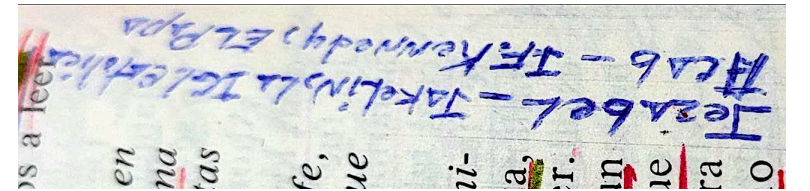 Jezabel – Jakelin, La IGL Catolica
Acab – J.F. Kennedy, EL Papa
os a leer
en
na
tas
fe,
que
ni-
a,
er.
un
ue
ra
o